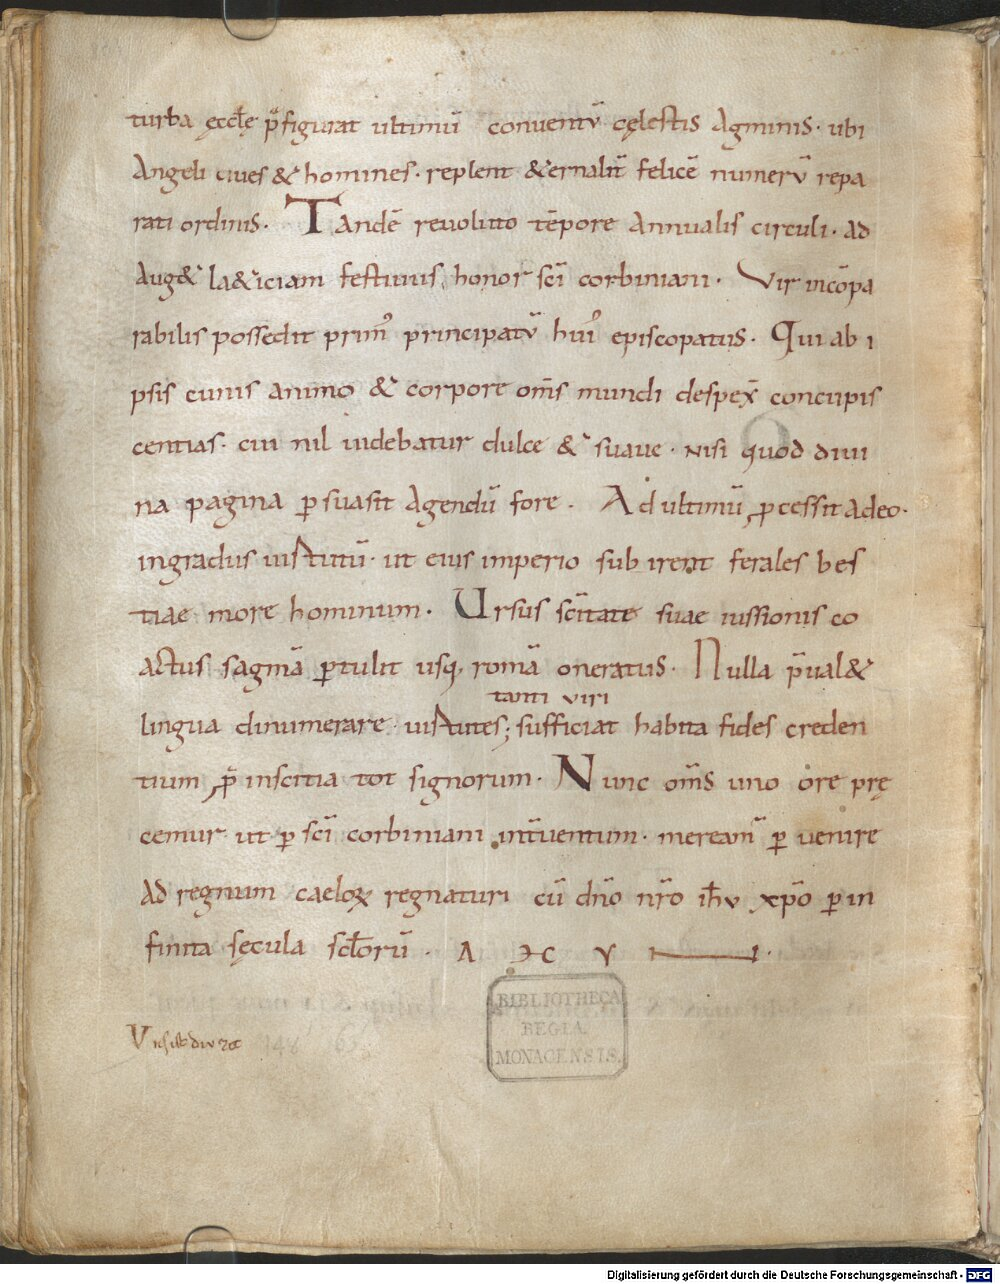 turba ęccłę p̄figurat ultimū conventū cęlestis Agminis· ubi
Angeli cives & homines· replent &ernalit̄ felicē numerū repa
rati ordinis· Tandē revoluto tēpore Annualis circuli· ad
Aug& la&iciam festivus honor sc̄i corbiniani· Vir incōpa
rabilis possedit prim᾿ principatū hui᾿ episcopatus· Qui ab i
psis cunis animo & corpore om̄s mundi despex̄ concupis
centias· cui nil videbatur dulce & suave· nisi quod divi
na pagina ꝑsuasit Agendū fore· Ad ultimū ꝓcessit Adeo·
ingradus virtutū· ut eius imperio subirent ferales bes
tiae more hominum· Ursus sc̄itate suae iussionis co
actus sagmā ꝑtulit usq; romā oneratus· Nulla p̄val&
tanti viri
lingua dinumerare virtutes; sufficiat habita fides creden
tium, p̄ inscitia tot signorum· Nunc om̄s uno ore prę
cemur ut ꝑ sc̄i corbiniani int̄ventum· meream̄ ꝑ venire
Ad regnum caeloꝝ regnaturi cū dn̄o nr̄o ih̄u xp̄o ꝑ in
finita sęcula scłorū· A M E N·
BIBLIOTHECA
REGIA
MONACENSIS.
Digitalisierung gefördert durch die Deutsche Forschungsgemeinschaft - DFG